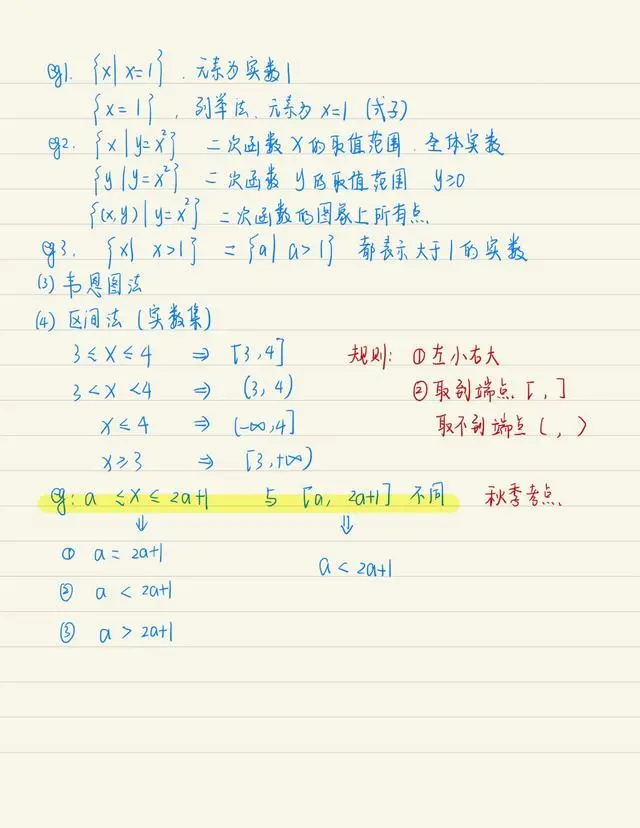 eg1. {x| x=1} . 元素为实数1
{x=1} , 列举法. 元素为 x=1 (式子)
eg2. {x|y=x²} 二次函数 x 的取值范围. 全体实数
{y|y=x²} 二次函数 y的取值范围 y≥0
{(x,y)|y=x²} 二次函数的图象上所有点.
eg3. {x| x>1} = {a| a>1} 都表示大于1的实数
(3) 韦恩图法
(4) 区间法 (实数集)
3≤x≤4 ⇒ [3,4] 规则: ①左小右大
3<x<4 ⇒ (3,4) ②取到端点. [ , ]
x≤4 ⇒ (-∞,4] 取不到端点 ( , )
x≥3 ⇒ [3,+∞)
eg: a ≤x≤ 2a+1 与 [a, 2a+1] 不同 秋季考点.
⇓ ⇓
① a = 2a+1 a < 2a+1
② a < 2a+1
③ a > 2a+1